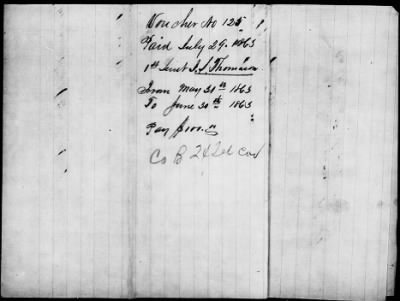 Voucher No 125
Paid July 29. 1863
1st Lieut J. S. Thomason
From May 30th 1863
To June 30th 1863
Pay $100.00
Co B 24